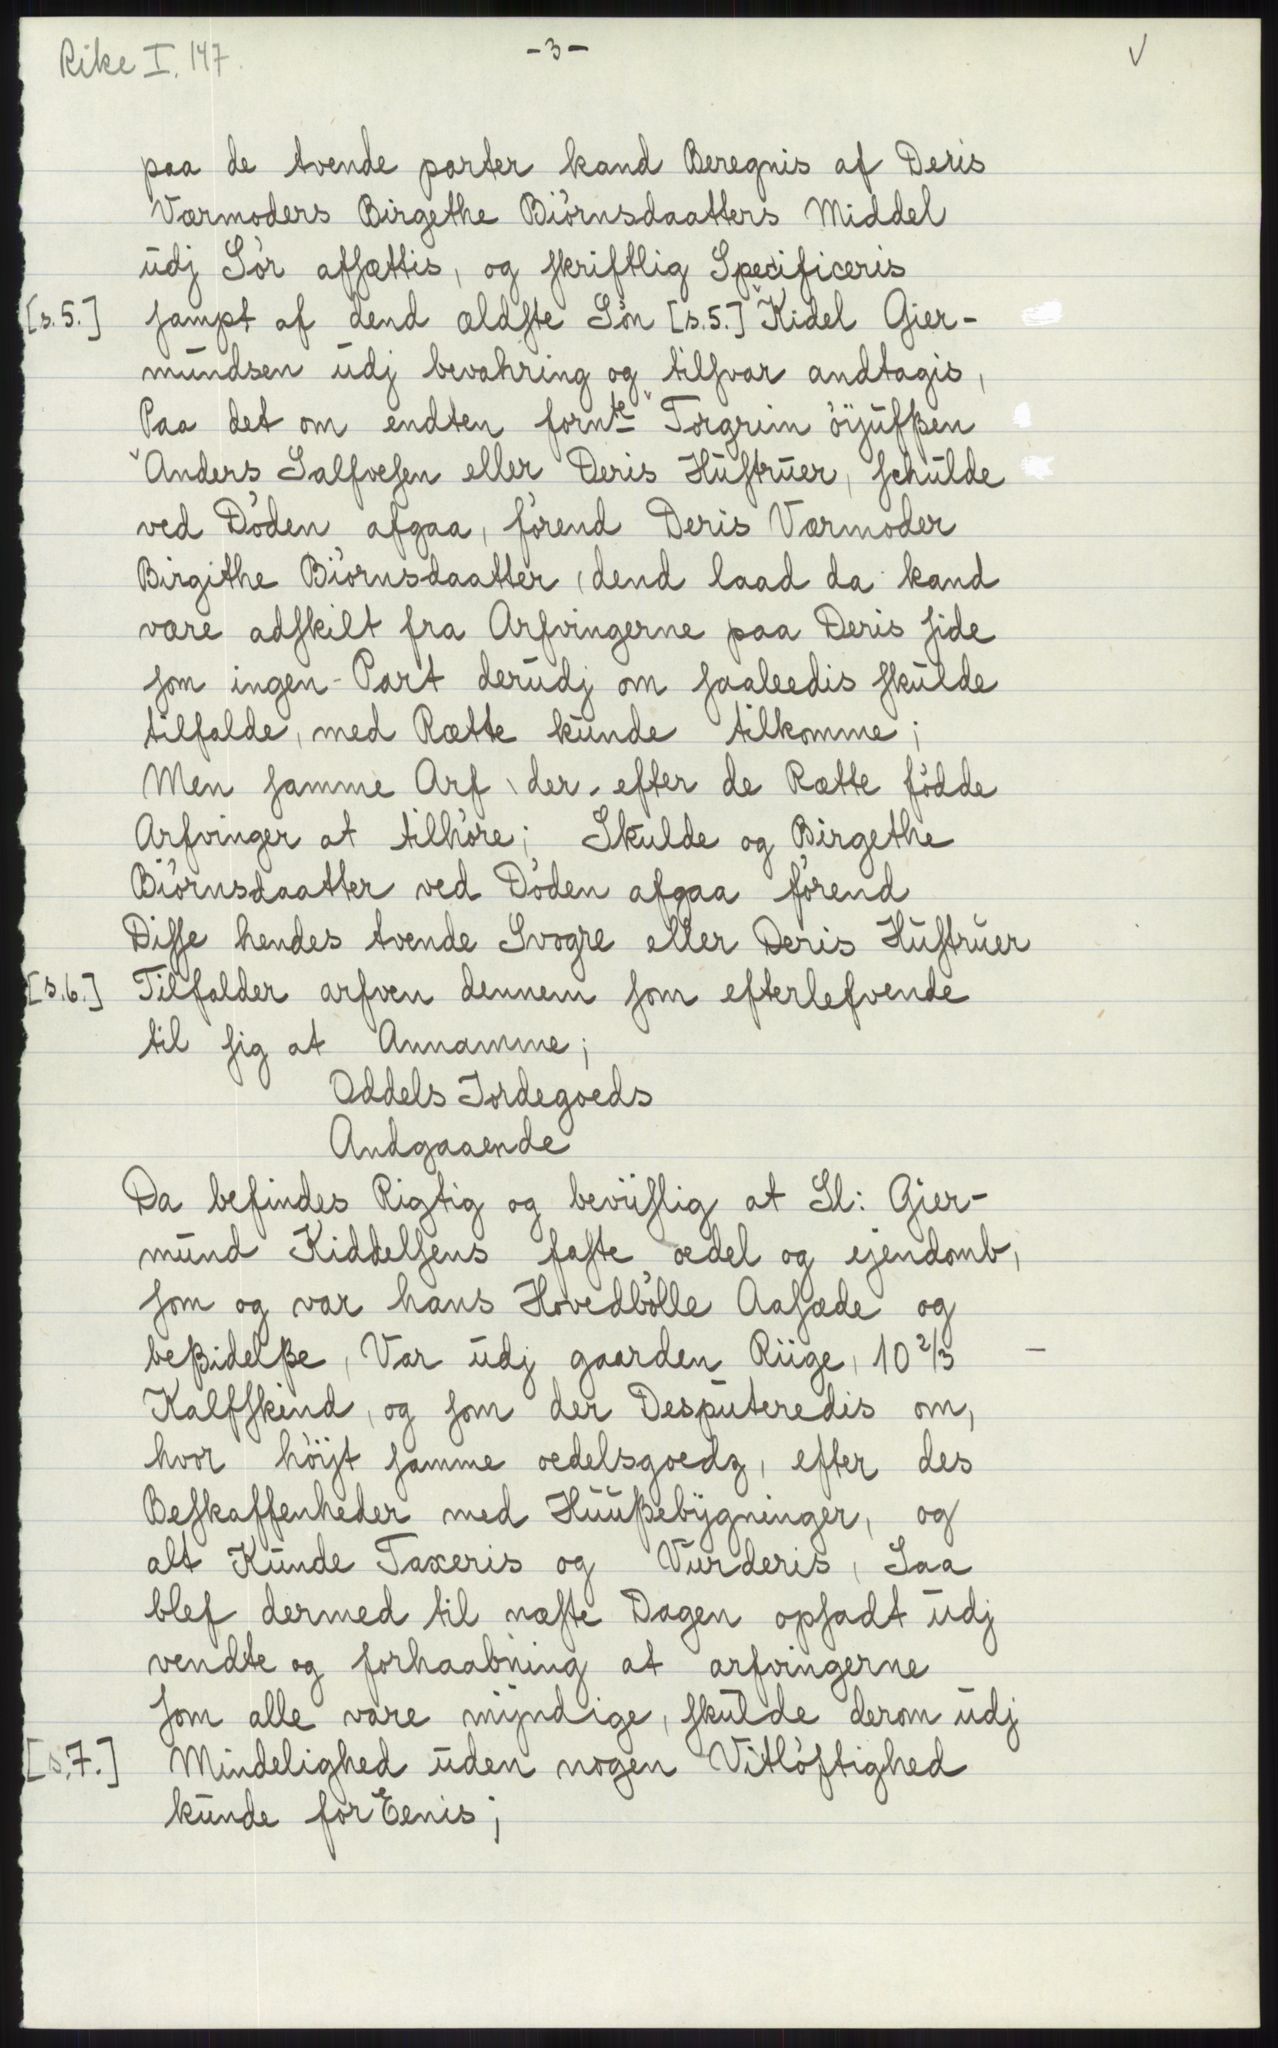 Rike I. 147.
-3-
paa de tvende parter kand Beregnis af Deris
Værmoders Birgethe Biörnsdaatters Middel
udj Sör afsættis, og skriftlig Specificeris
[s.5.] sampt af dend ældste Sön [s.5.] Kidel Gier-
mundsen udj bevahring og tilsvar andtagis,
Paa det om endten fornte Torgrim öÿufßen
Anders Salfvesen eller Deris Hustruer, schulde
ved Döden afgaa, förend Deris Værmoder
Birgithe Biörnsdaatter, dend laad da kand
være adskilt fra Arfvingerne paa Deris side
som ingen Part derudj om saaleedis skulde
tilfalde, med Rætte kunde tilkomme;
Men samme Arf der efter de Rætte födde
Arfvinger at tilhöre; Skulde og Birgethe
Biörnsdaatter ved Döden afgaa förend
Disse hendes tvende Svogre eller Deris Hustruer
[s.6.] Tilfalder arfven dennem som efterlefvende
til sig at Annamme;
Oddels Jordegoeds
Andgaaende
Da befindes Rigtig og beviislig at Sl: Gier-
mund Kiddelsens faste oedel og ejendomb,
som og var hans Hovedbölle Aasæde og
beßidelße, Var udj gaarden Riige, 10 2/3
Kalfskind, og som der Desputeredis om,
hvor höÿt samme oedelsgoedz, efter des
Beskaffenheder med Huußebÿgninger, og
alt Kunde Taxeris og Vurderis, Saa
blef dermed til næste Dagen opsadt udj
vendte og forhaabning at arfvingerne
som alle vare mÿndige, skulde derom udj
[s.7.] Mindelighed uden nogen Vitlöftighed
kunde forEenis;